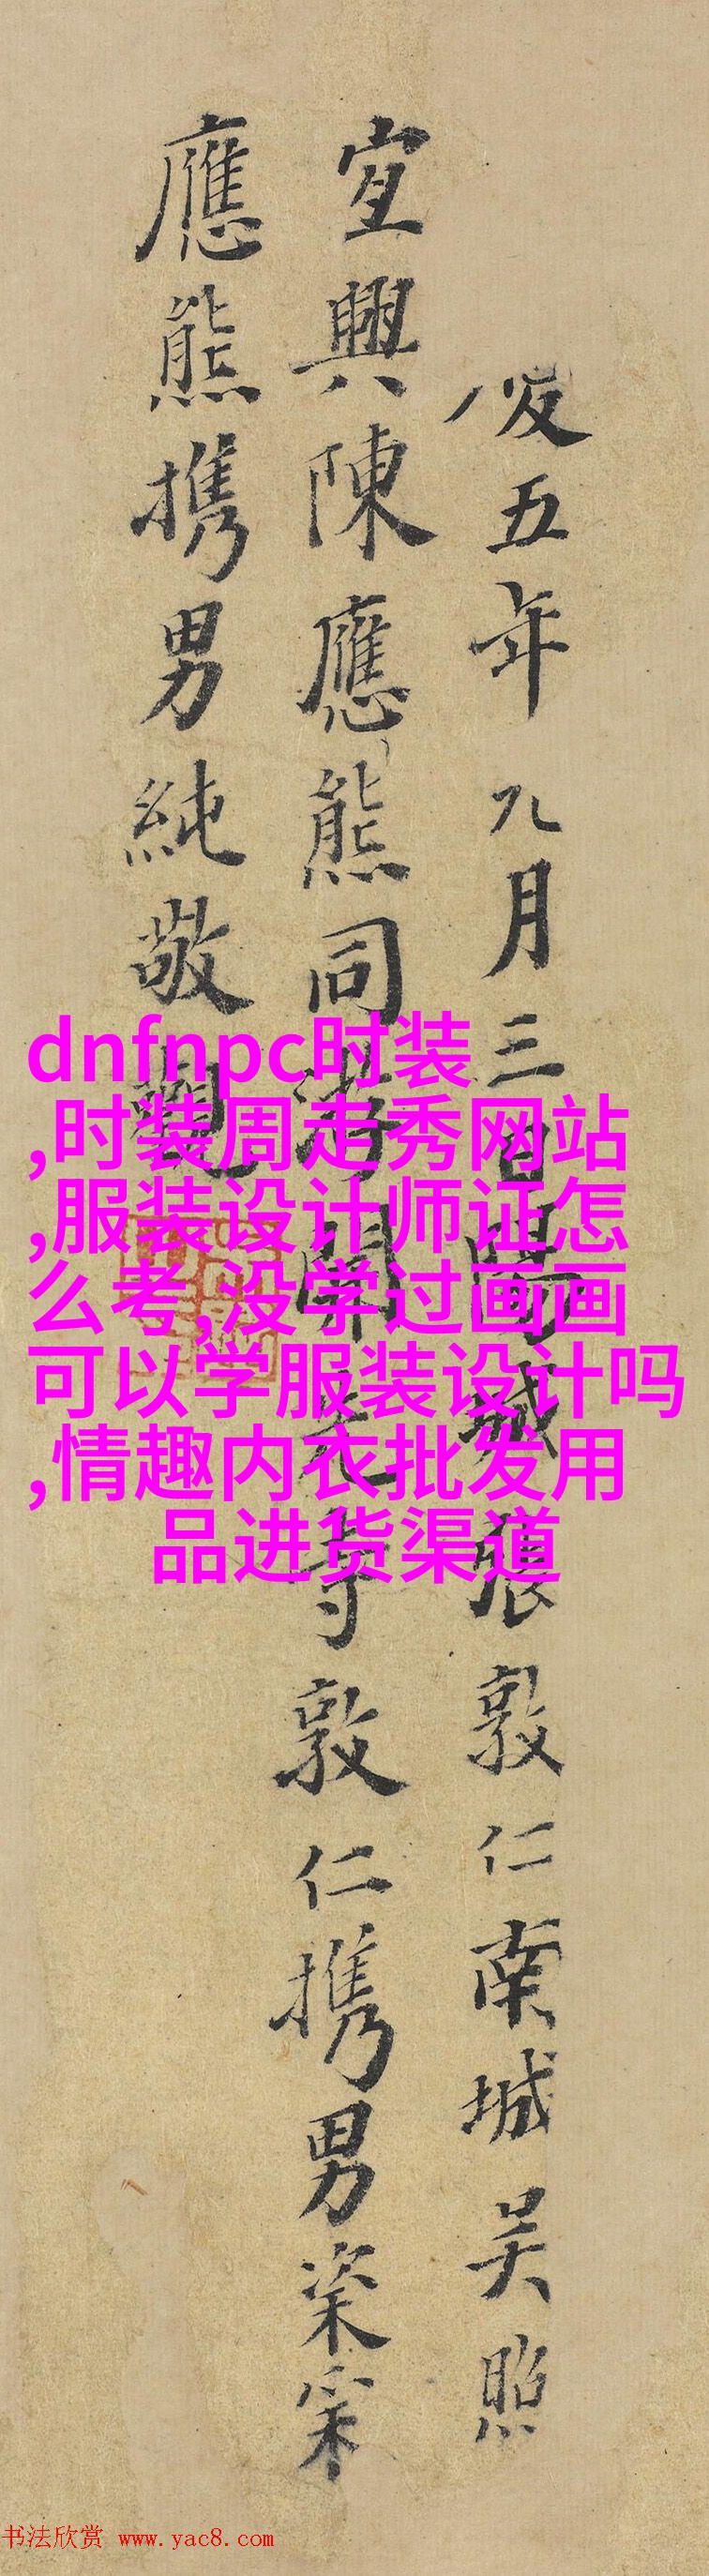 □𤣥五年九月三日陽城張敦仁南城吳照
宜興陳應熊同游開元寺敦仁携男粢寀
應熊携男純敬觀
dnfnpc时装
,时装周走秀网站
,服装设计师证怎
么考,没学过画画
可以学服装设计吗
,情趣内衣批发用
品进货渠道
书法欣赏 www.yac8.com